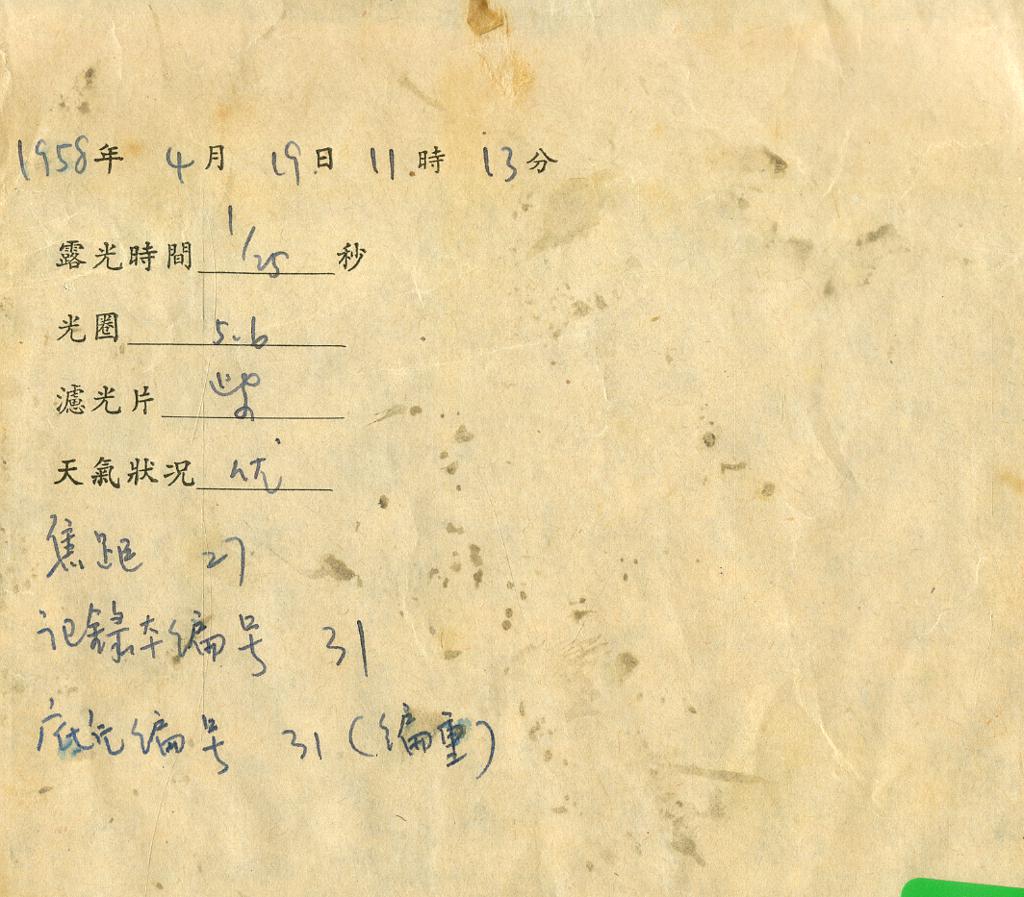 1958年 4月 19日 11時 13分
露光時間 1/25 秒
光圈 5.6
濾光片
天氣狀况 优
焦距 27
记錄本编号 31
底片编号 31（编重）